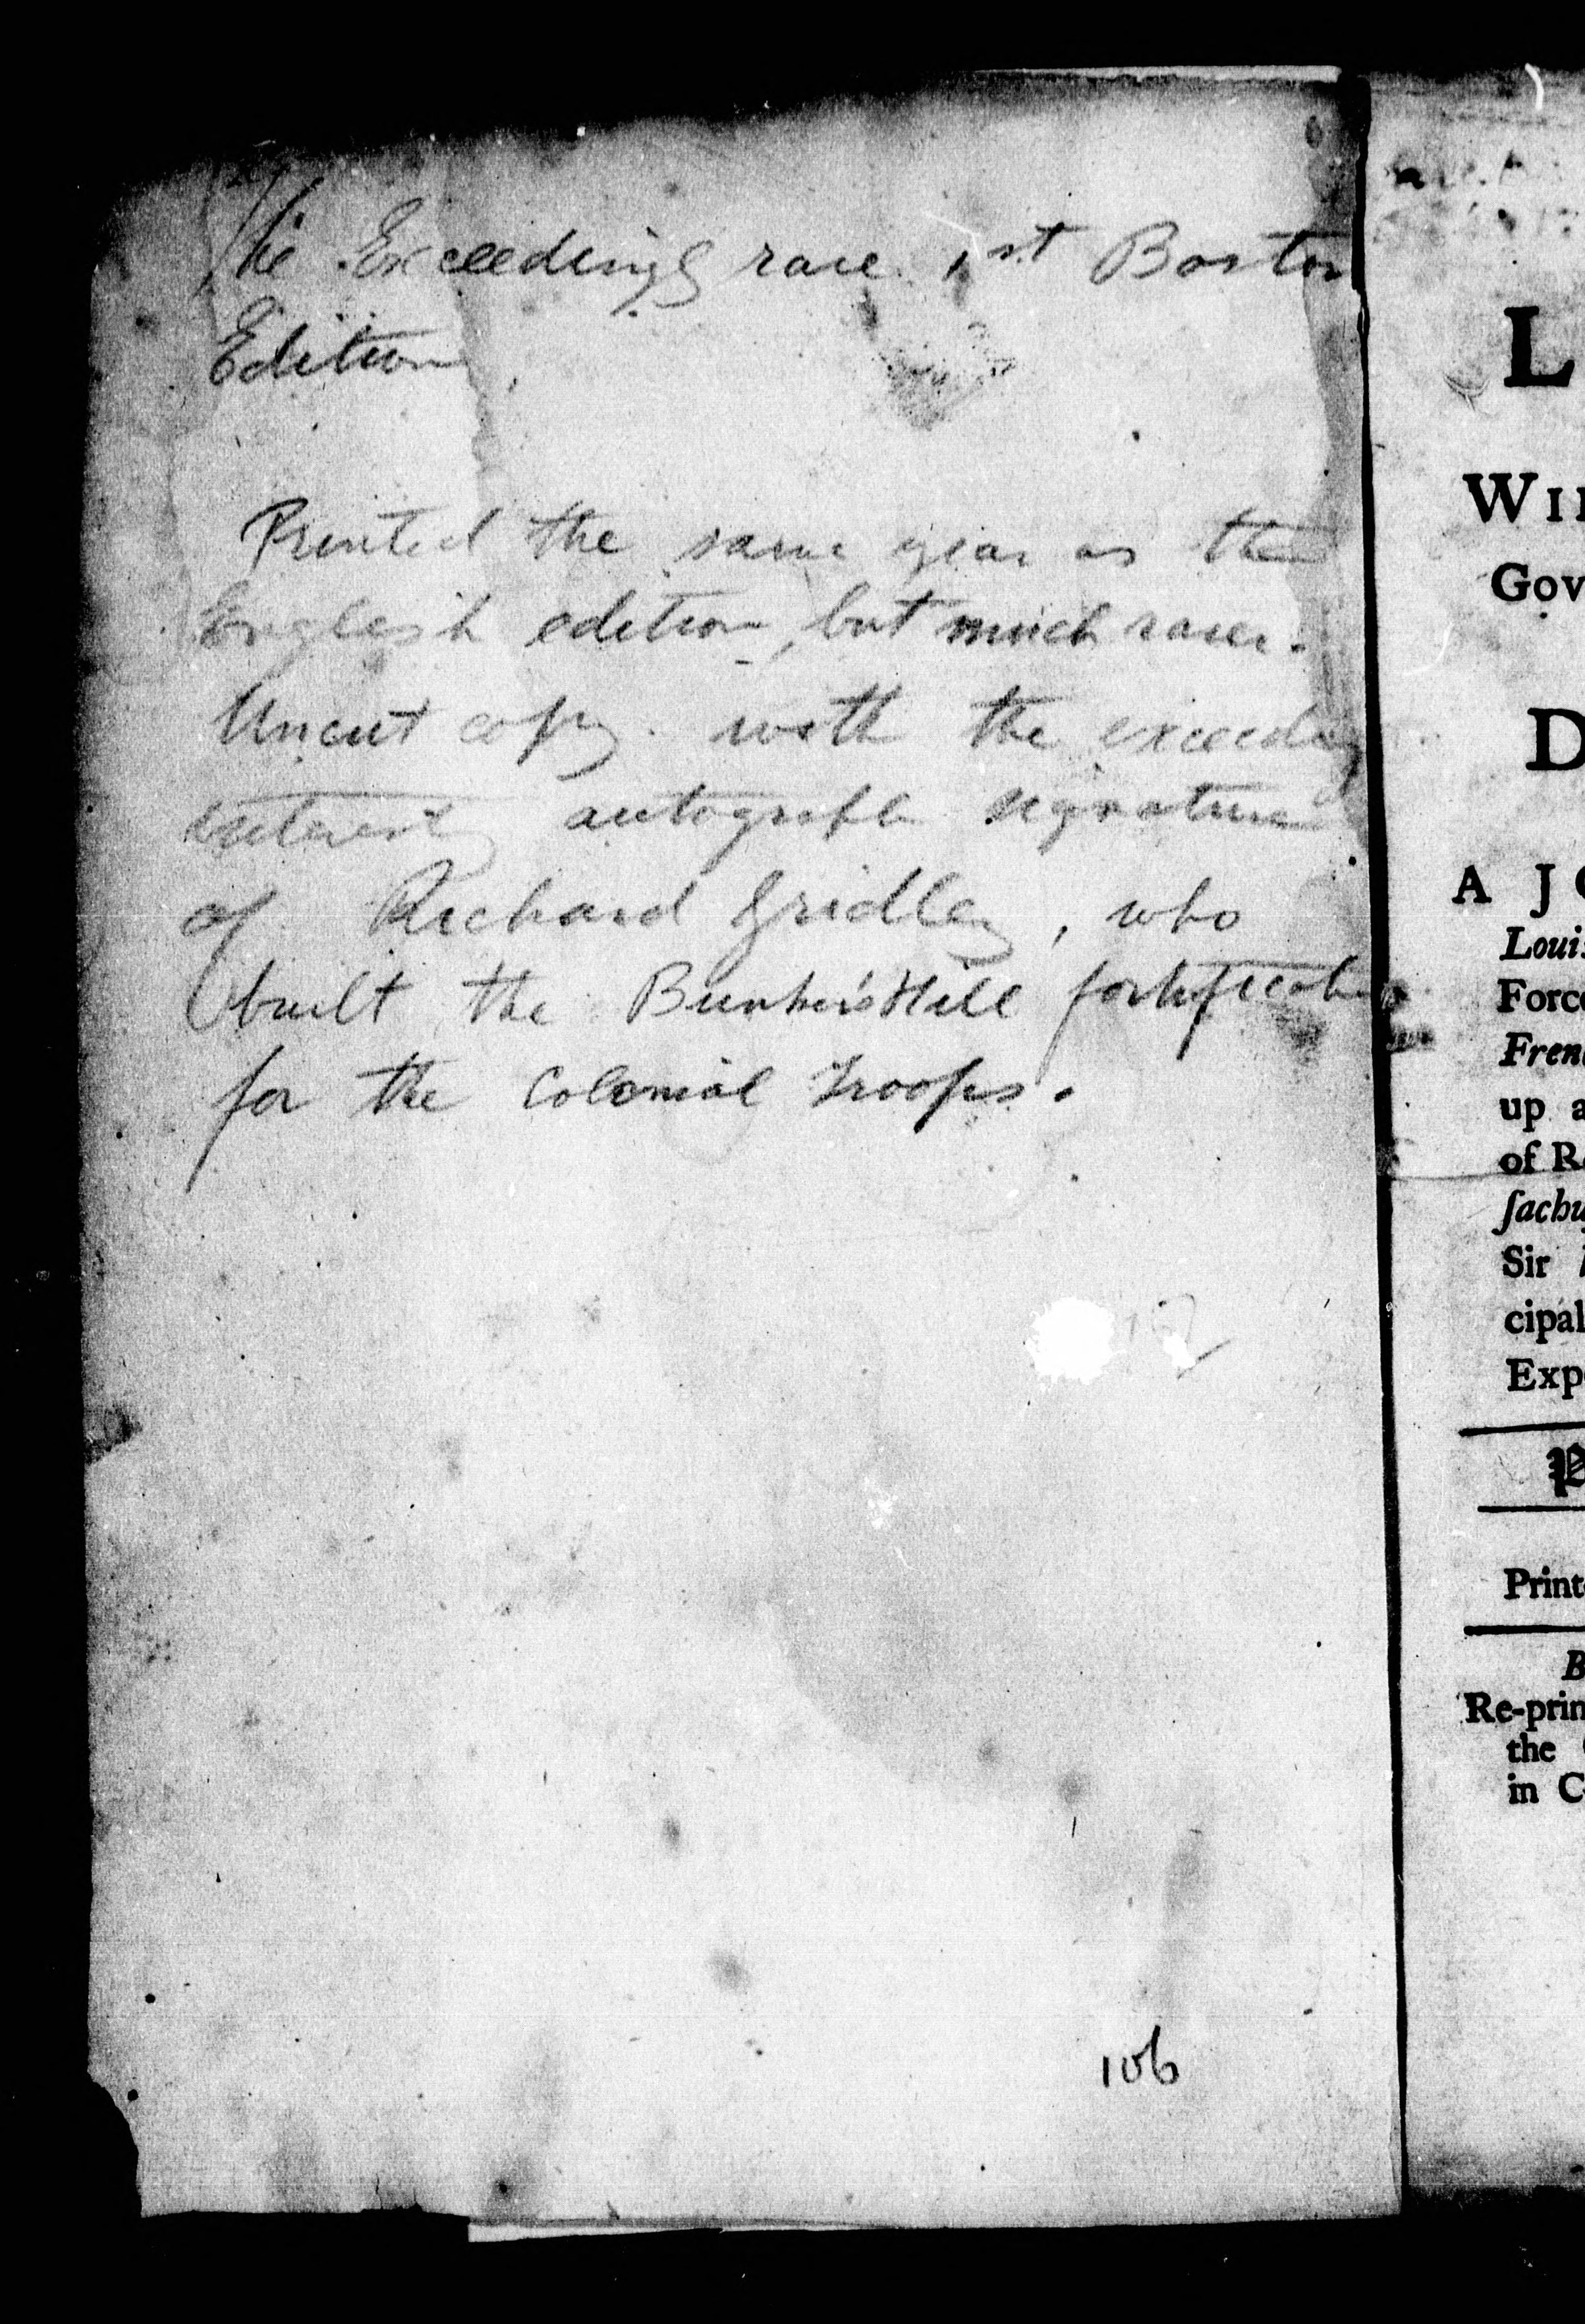 The Exceedingly rare 1st Boston
Edition
Printed the same year as the
English edition, but much rarer.
Uncut copy with the exceeding
autograph signature
of Richard Gridley, who
built the Bunker's Hill
for the Colonial Troops.
106
L
WI
Gov
D
A J
Loui
Forc
Fren
up a
of R
ſachu
Sir
cipal
Exp
P
Print
B
Re-prin
the
in C